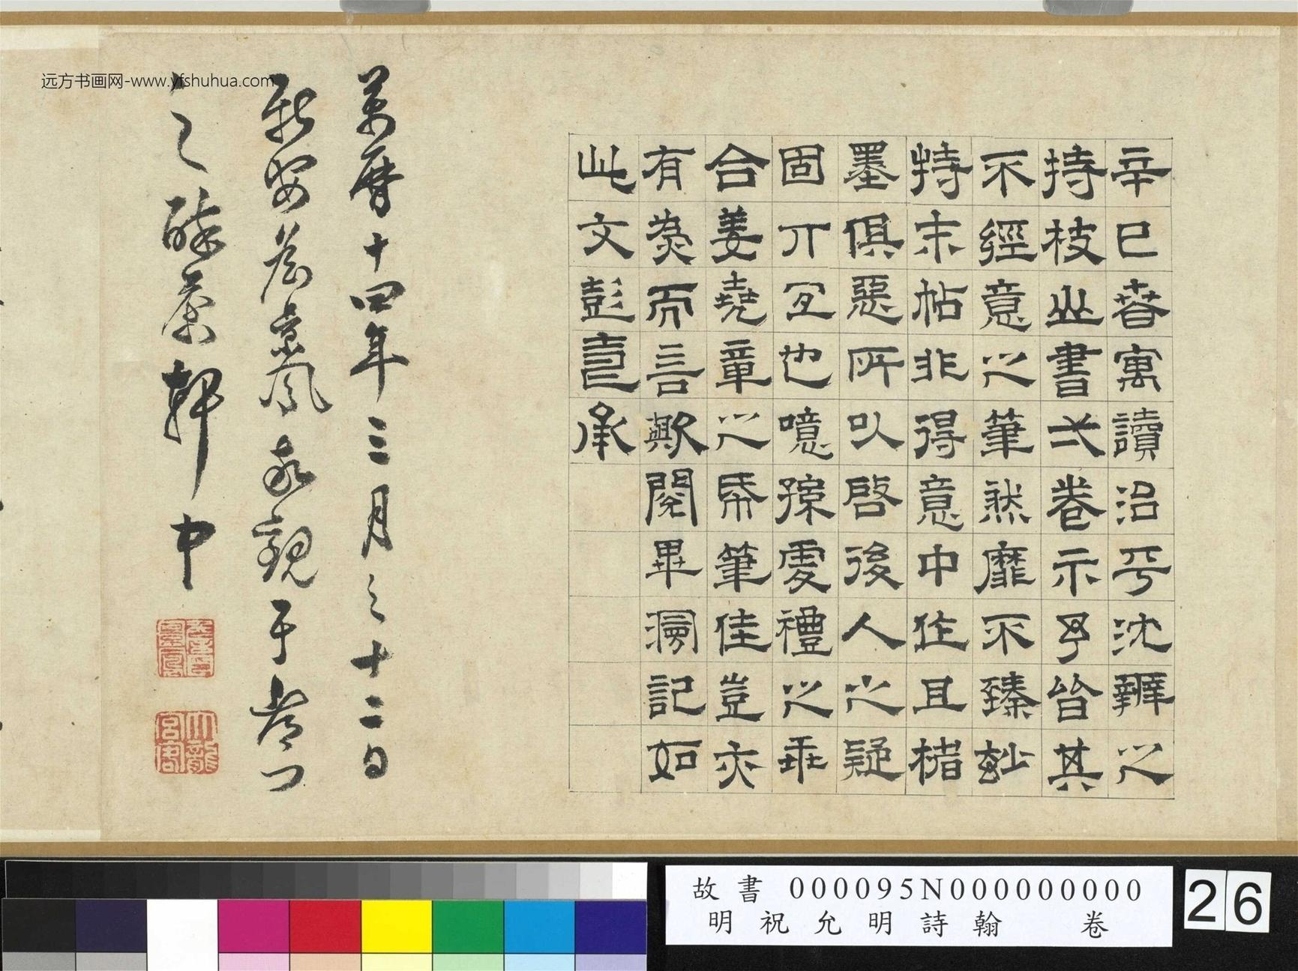 辛巳春寓讀沿平沈辭之
持枝山書一卷示予皆其
不經意之筆然靡不臻妙
特末帖非得意中作且楮
墨俱惡所以啓後人之疑
固亓宜也噫孫虔禮之乖
合姜堯章之帋筆佳豈亦
有為而言歟閱畢漫記如
此文彭壽承
萬曆十四年三月之十二日
新安詹景鳳觀于
之醉茶軒中
远方书画网-www.yfshuhua.com
故書 000095N000000000
明祝允明詩翰 卷
26